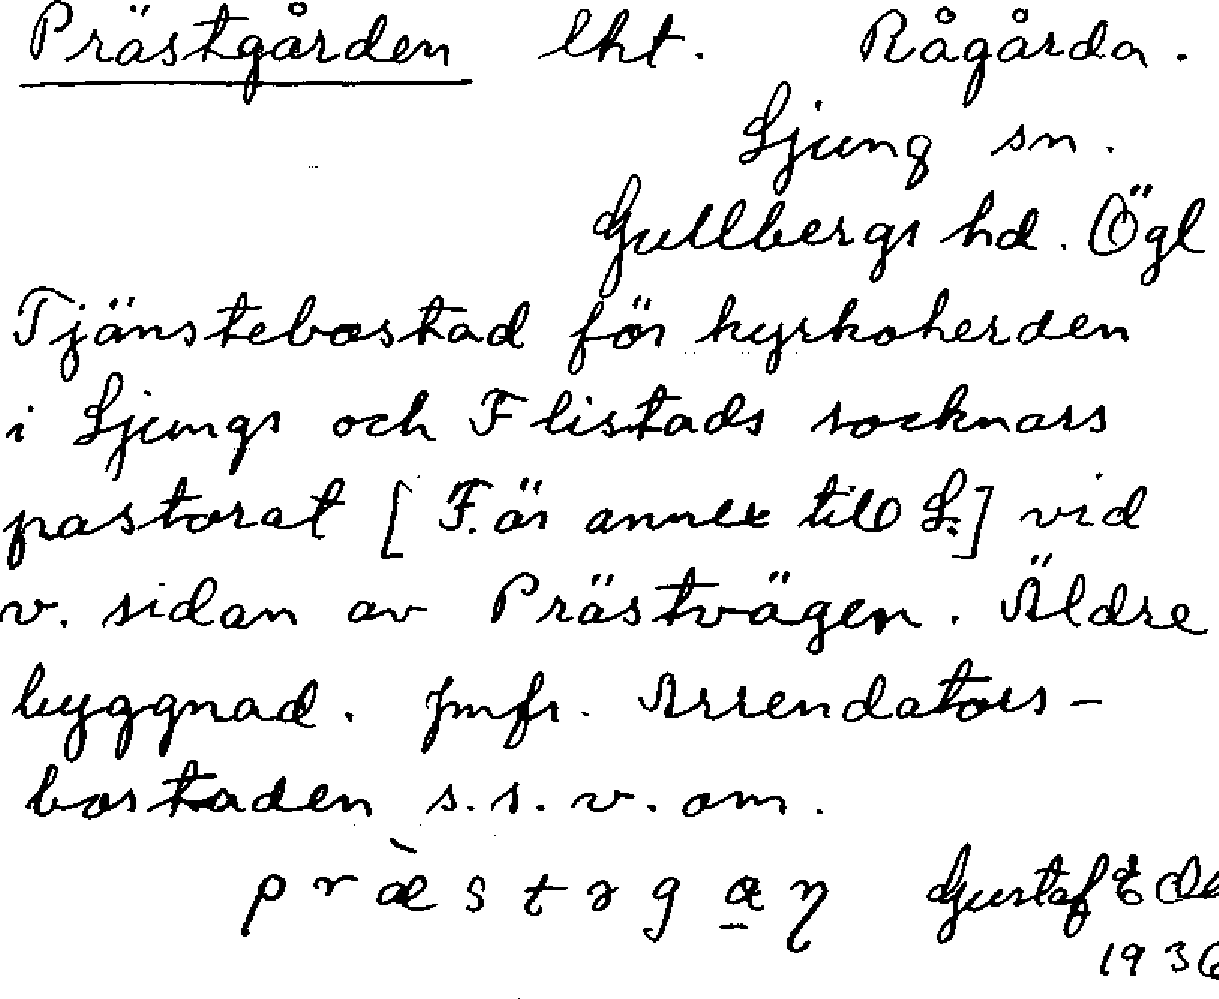 Prästgården lht. Rågårda.
Ljung sn.
Gullbergs hd. Ögl
Tjänstebostad för kyrkoherden
i Ljungs och Flistads socknars
pastorat [F. är annex till L.] vid
v. sidan av Prästvägen. Äldre
byggnad. Jmfr. Arrendators-
bostaden s. s. v. om.
Gustaf
1936